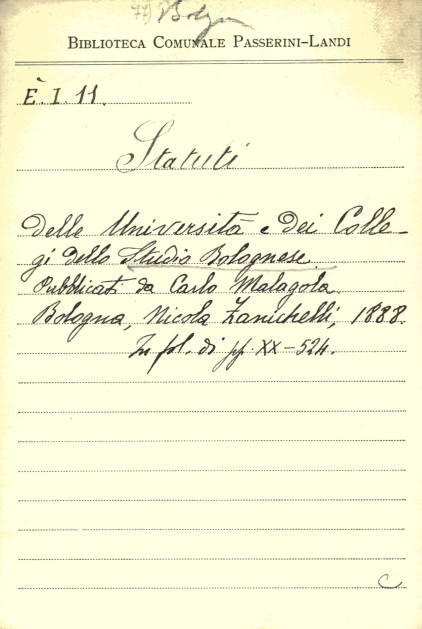 Bologna
BIBLIOTECA COMUNALE PASSERINI-LANDI
È. I. 11.
Statuti
delle Università e dei Colle-
gi dello Studio Bolognese.
Pubblicati da Carlo Malagola.
Bologna, Nicola Zanichelli, 1888.
In fol. di pp. XX-524.
C